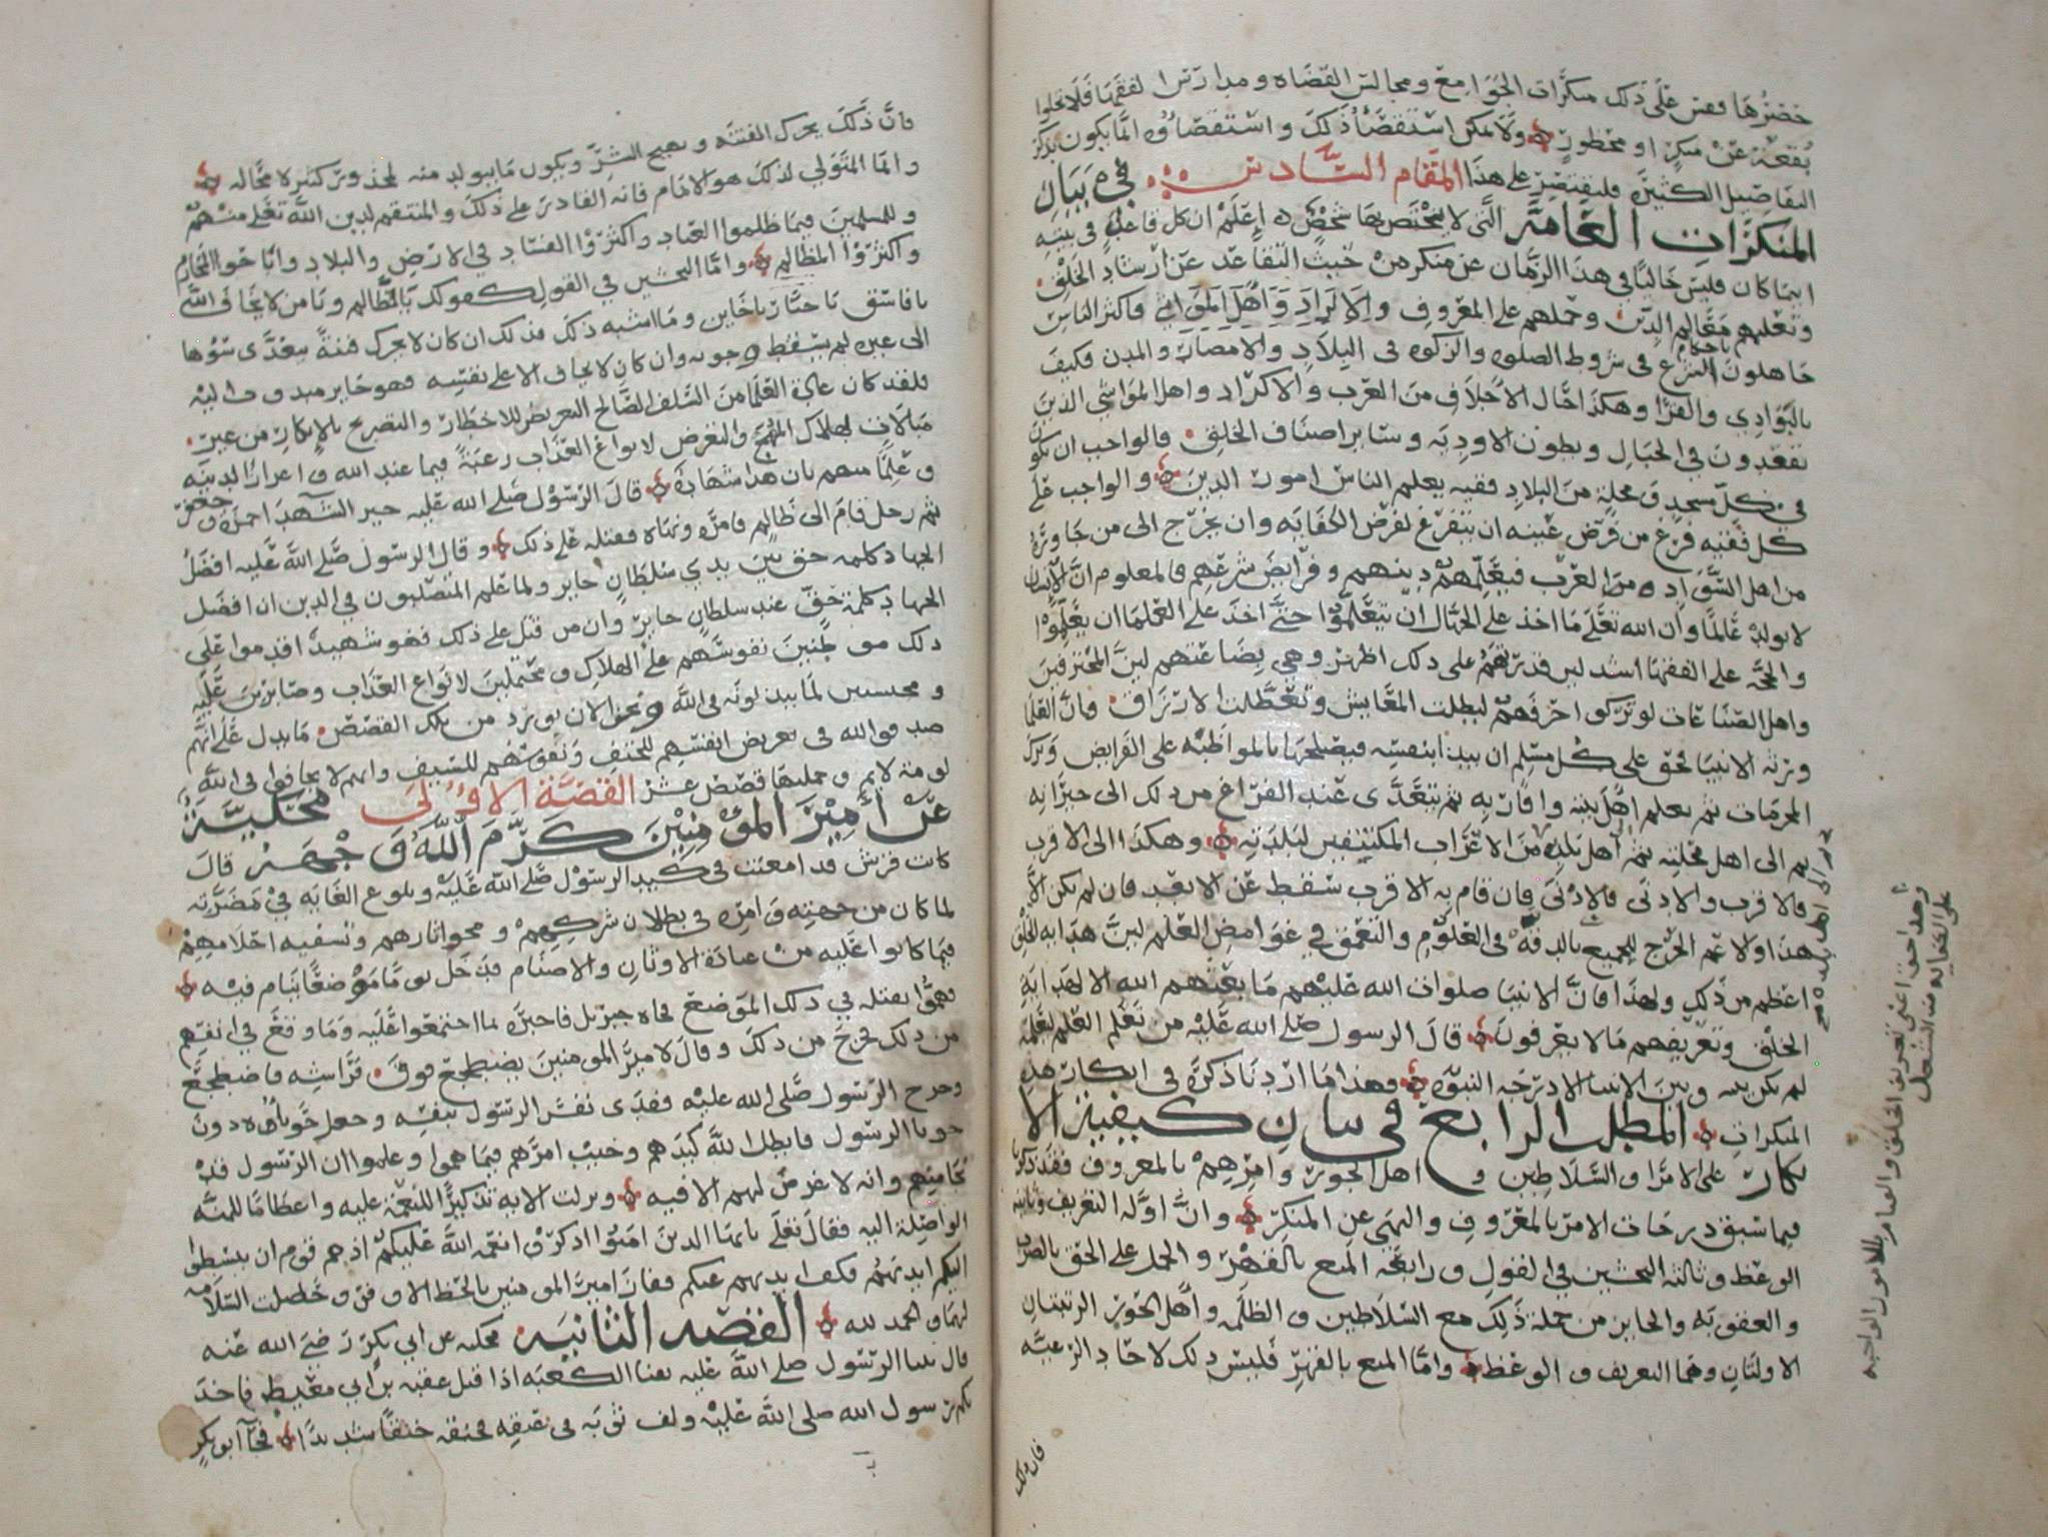 حضرها فقس على ذلك منكرات الجوامع ومجالس القضاه ومدارس الفقها فلا تخلوا
بقعة عن منكر او محظور ولا يمكن استقصا ذلك واستقصاؤه انما يكون بذكر
التفاصيل الكثيرة فليقتصر على هذا المقام السادس في بيان
المنكرات العامة التي لا يختص بها شخص اعلم ان كل قاعد في بيته
اينما كان فليس خاليا في هذا الزمان عن منكر من حيث التقاعد عن ارشاد الخلق
وتعليمهم معالم الدين وحملهم على المعروف والاكراد واهل المواشي فاكثر الناس
جاهلون باحكام الشرع في شروط الصلوه والزكوه في البلاد والامصار والمدن فكيف
بالبوادي والقرا وهكذا حال الاجلاف من العرب والاكراد واهل المواشي الذين
يقعدون في الجبال وبطون الاوديه وساير اصناف الخلق فالواجب ان يكون
في كل مسجد ومحلة من البلاد فقيه يعلم الناس امور الدين والواجب على
كل فقيه فرغ من فرض عينه ان يتفرغ لفرض الكفايه وان يخرج الى من جاوره
من اهل السواد ومن العرب فيعلمهم دينهم وفرايض شرعهم فالمعلوم ان الانسان
لا يولد عالما وان الله تعلى ما اخذ على الجهال ان يتعلموا حتى اخذ على العلما ان يعلموا
والحجه على الفقها اشد لان قدرتهم على ذلك اظهر وهي بضاعتهم لان المحترفين
واهل الصناعات لو تركوا حرفهم لبطلت المعايش وتعطلت الارزاق فان العلما
ورثه الانبيا فحق على كل مسلم ان يبدا بنفسه فيصلحها بالمواظبه على الفرايض وترك
المحرمات ثم يعلم اهل بيته واقاربه ثم يتعدى عند الفراغ من ذلك الى جيرانه
ثم الى اهل محلته ثم اهل بلده من الاعراب المكتنفين لبلدته وهكذا الى الاقرب
فالاقرب والادنى فالادنى فان قام به الاقرب سقط عن الابعد فان لم يكن الا
هذا والا عم الحرج للجميع بالدقه في العلوم والتعمق في غوامض العلم لان هدايه الخلق
اعظم من ذلك ولهذا فان الانبيا صلوات الله عليهم ما بعثهم الله الا لهدايه
الخلق وتعريفهم ما لا يعرفون قال الرسول صلى الله عليه من تعلم العلم ليعلمه
لم يكن بينه وبين الانبيا الا درجه النبوه فهذا ما اردنا ذكره في انكار هذه
المنكرات المطلب الرابع في بيان كيفية الا
نكار على الامرا والسلاطين و اهل الجور وامرهم بالمعروف فقد ذكرنا
فيما سبق درجات الامر بالمعروف والنهي عن المنكر وان اوله التعريف وثانيه
الوعظ وثالثه التخشين في القول ورابعه المنع بالقهر والحمل على الحق بالضرب
والعقوبه والجايز من جملة ذلك مع السلاطين والظلمه واهل الجور الرتبتان
الاولتان وهما التعريف والوعظ واما المنع بالقهر فليس ذلك لاحاد الرعيه
فان ذلك
ثم الى اهل بلده صح
وهذا حق اعني تعريف الخلق والعلم بالامور الواجبه
على الكفايه من الشغل
فان ذلك يحرك الفتنه ويهيج الشر ويكون ما يتولد منه المحذور كثير لا محاله
وانما المتولي لذلك هو الامام فانه القادر على ذلك والمنتقم لدين الله تعلى منهم
وللمسلمين فيما ظلموا العباد واكثروا الفساد في الارض والبلاد واباحوا المحارم
واكثروا المظالم واما التخشين في القول كقولك يا ظالم ويا من لا يخاف الله
يا فاسق يا جبار يا خاين وما اشبه ذلك فذلك ان كان لا يحرك فتنة يتعدى سوها
الى غيره لم يسقط وجوبه وان كان لا يخاف الا على نفسه فهو جايز مندوب اليه
فلقد كان عادة العلما من السلف الصالح التعريض للاخطار والتصريح بالانكار من غير
مبالاة بهلاك المهج والتعرض لانواع العذاب رغبة فيما عند الله واعزازا لدينه
وعلما منهم بان هذا شهادة قال الرسول صلى الله عليه خير الشهدا حمزه وجعفر
ثم رجل قام الى ظالم فامره ونهاه فقتله على ذلك وقال الرسول صلى الله عليه افضل
الجهاد كلمه حق بين يدي سلطان جاير ولما علم المتصلبون في الدين ان افضل
الجهاد كلمة حق عند سلطان جاير وان من قتل على ذلك فهو شهيد اقدموا على
ذلك موطنين نفوسهم على الهلاك ومحتملين لانواع العذاب وصابرين عليه
ومحتسبين لما يبذلونه في الله ونحن الان نورد من تلك القصص ما يدل على انهم
صدقوا الله في تعريض انفسهم للحتف ونفوسهم للسيف وانهم لا يخافوا في الله
لومة لايم وجملتها قصص عشر القصة الاولى محكية
عن أمير المؤمنين كرم الله وجهه قال
كانت قريش قد امعنت في كيد الرسول صلى الله عليه وبلوع الغايه في مضرته
لما كان من جهته وامره في بطلان شركهم ومحو اثارهم وتسفيه احلامهم
فيما كانوا عليه من عبادة الاوثان والاصنام فدخل يوما موضعا ينام فيه
فهموا بقتله في ذلك الموضع فجاه جبريل فاخبره بما اجتمعوا عليه وما وقع في انفسهم
من ذلك فخرج من ذلك وقال لامير المومنين يضطجع فوق فراشه فاضطجع
وخرج الرسول صلى الله عليه ففدى نفس الرسول بنفسه وجعل حوباؤه دون
حوبا الرسول فابطل الله كيدهم وخيب امرهم فيما هموا وعلموا ان الرسول قد
فاتهم وانه لا غرض لهم الا فيه ونزلت الايه تذكيرا للنعمة عليه واعظاما للمنه
الواصلة اليه فقال تعلى يايها الذين امنوا اذكروا نعمه الله عليكم اذ هم قوم ان يبسطوا
اليكم ايديهم فكف ايديهم عنكم ففاز امير المومنين بالحظ الاوفر وخلصت السلامه
لهما والحمد لله القصه الثانيه محكيه عن ابي بكر رضي الله عنه
قال بينا الرسول صلى الله عليه بفنا الكعبه اذا قبل عقبه بن ابي معيط فاخذ
بكم رسول الله صلى الله عليه ولف ثوبه في عنقه فخنقه خنقا شديدا فجا ابو بكر